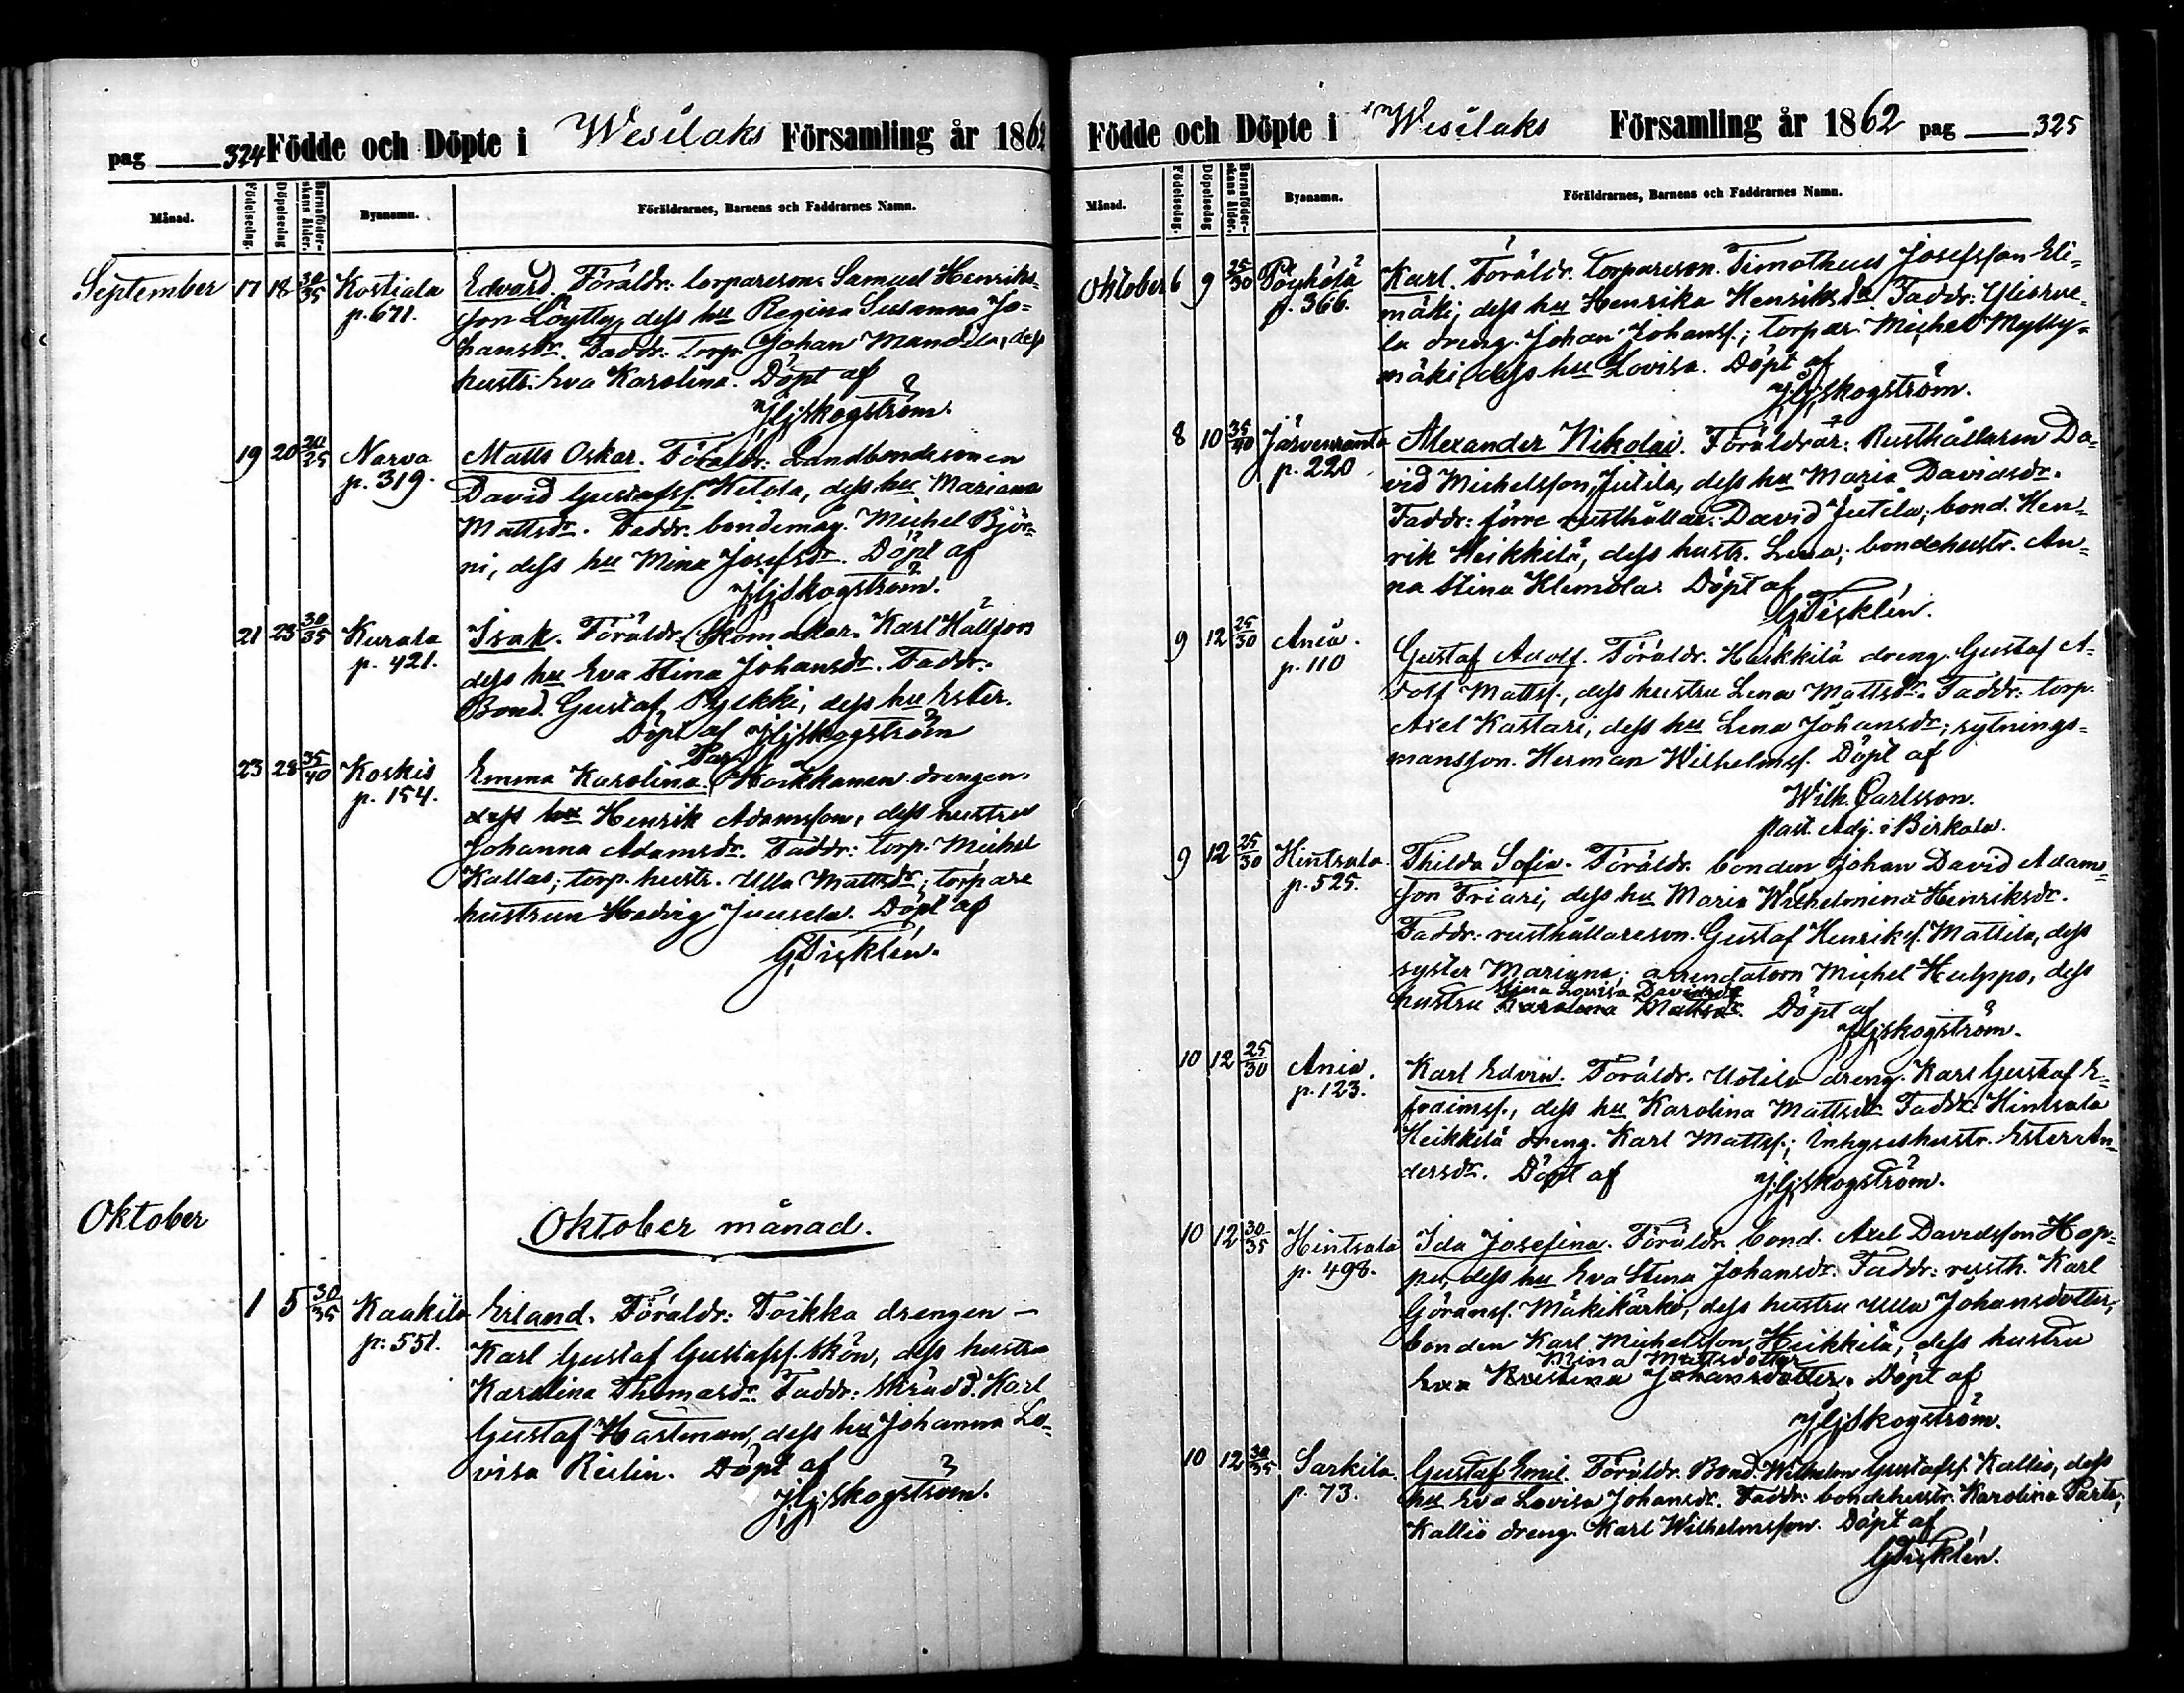 pag 324 Födde och Döpte i Wesilaks Församling år 1862
Månad. Födelsedag. Döpelsedag Barnaföder-skans ålder. Byanamn. Föräldrarnes, Barnens och Faddrarnes Namn.
September 17 18 30/35 Kostiala Edvard. Föräldr: torpareson. Samuel Henriks-
p. 671. son Löytty, dess hu Regina Susanna Jo-
hansdr. Faddr: Torp. Johan Mandila, dess
hustr. Eva Karolina. Döpt af
JHjSkogström.
19 20 20/25 Narva Matts Oskar. Föräldr: Landbondesonen
p. 319. David Gustafss. Ketola, dess hu Mariana
Mattsdr. Faddr. bondemåg. Michel Björ-
ni, dess hu Mina Josefsdr. Döpt af
JHjSkogström.
21 23 30/35 Kurala Isak. Föräldr. Skomakar. Karl Hällfors
p. 421. dess hu Eva Stina Johansdr. Faddr.
Bond. Gustaf Pylkki, dess hu Ester.
Döpt af JHjSkogström
Par.
23 28 35/40 Koskis Emma Karolina. Koikkanen drengen
p. 154. dess hu Henrik Adamsson, dess hustru
Johanna Adamsdr. Faddr: torp. Michel
Kallas; torp. hustr. Ulla Mattsdr; torpare
hustrun Hedvig Juusela. Döpt af
GTicklén.
Oktober Oktober månad.
1 5 30/35 Kaakila Erland. Föräldr: Toikka drengen –
p. 551. Karl Gustaf Gustafss. Skön, dess hustru
Karolina Thomasdr. Faddr: Skrädd. Karl
Gustaf Hartman, dess hu Johanna Lo-
visa Relin. Döpt af
JHjSkogström.
Födde och Döpte i Wesilaks Församling år 1862 pag 325
Månad. Födelsedag. Döpelsedag Barnaföder-skans ålder. Byanamn. Föräldrarnes, Barnens och Faddrarnes Namn.
Oktober 6 9 25/30 Pöyhölä Karl. Föräldr. Torpareson. Timotheus Josefsson Eli-
p. 366. mäki, dess hu Henrika Henriksdr Faddr: Yliorve-
la dreng. Johan Johanss.; torpar. Michel Mylly-
mäki, dess hu Lovisa. Döpt af
JHjSkogström.
8 10 35/40 Järvenranta Alexander Nikolai. Föräldrar: Rusthållaren Da-
p. 220 vid Michelsson Jutila, dess hu Maria Davidsdr.
Faddr: förre rusthållar: David Jutila; bond. Hen-
rik Heikkilä, dess hustr. Lena; bondehustr. An-
na Stina Klemola. Döpt af
GTicklén.
9 12 25/30 Ania. Gustaf Adolf. Föräldr. Heikkilä dreng. Gustaf A-
p. 110 dolf Mattss., dess hustru Lena Mattsdr. Faddr: torp.
Axel Kastari, dess hu Lena Johansdr; sytnings-
mansson. Herman Wilhelmss. Döpt af
Wilh. Carlsson.
past. Adj. i Birkala.
9 12 25/30 Hintsala. Thilda Sofia. Föräldr. bonden Johan David Adams-
p. 525. son Friari, dess hu Maria Wilhelmina Henriksdr.
Faddr: rusthållareson. Gustaf Henrikss. Mattila, dess
syster Mariana; arrendatorn Michel Hulppo, dess
Stina Lovisa Davidsdr
hustru Karolina Mattsdr. Döpt af
JHjSkogström.
10 12 25/30 Ania. Karl Edvin. Föräldr. Uotila dreng. Karl Gustaf E-
p. 123. fraimss., dess hu Karolina Mattsdr Faddr: Hintsala
Heikkilä dreng. Karl Mattss.; Inhyseshustr. Ester An-
dersdr. Döpt af JHjSkogström.
10 12 30/35 Hintsala Ida Josefina. Föräldr. bond. Axel Davidsson Hop-
p. 498. pu, dess hu Eva Stina Johansdr. Faddr: rusth. Karl
Göranss. Mäkikärko, dess hustru Ulla Johansdotter;
bonden Karl Michelsson Heikkilä, dess hustru
Mina Mattsdotter
Eva Kristina Johansdotter. Döpt af
JHjSkogström.
10 12 30/35 Sarkila. Gustaf Emil. Föräldr. Bond. Wilhelm Gustafss. Kallio, dess
p. 73. hu Eva Lovisa Johansdr. Faddr: bondehustr. Karolina Parta;
Kallio dreng. Karl Wilhelmsson. Döpt af
GTicklén.